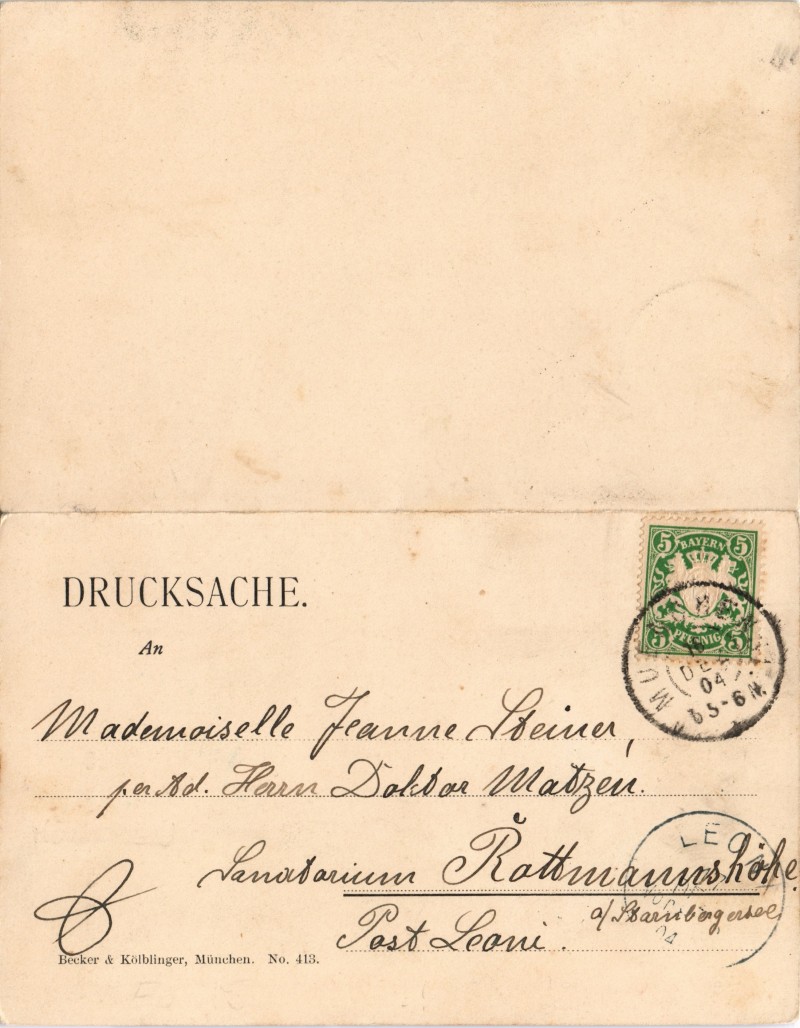 5 BAYERN 5
5 PFENNIG 5
DEZ
04
5-6 N.
DRUCKSACHE.
An
Mademoiselle Jeanne Steiner,
per Ad. Herrn Doktor Matzen.
Sanatorium Rottmannshöhe
a/ Starnbergersee
Post Leoni.
LE
Becker & Kölblinger, München. No. 413.